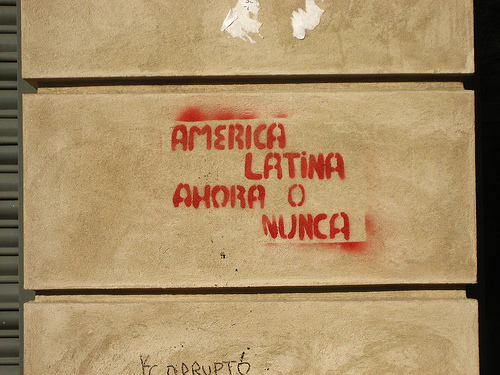 AMERICA
LATiNA
AHORA O
NUNCA
CORRUPTO